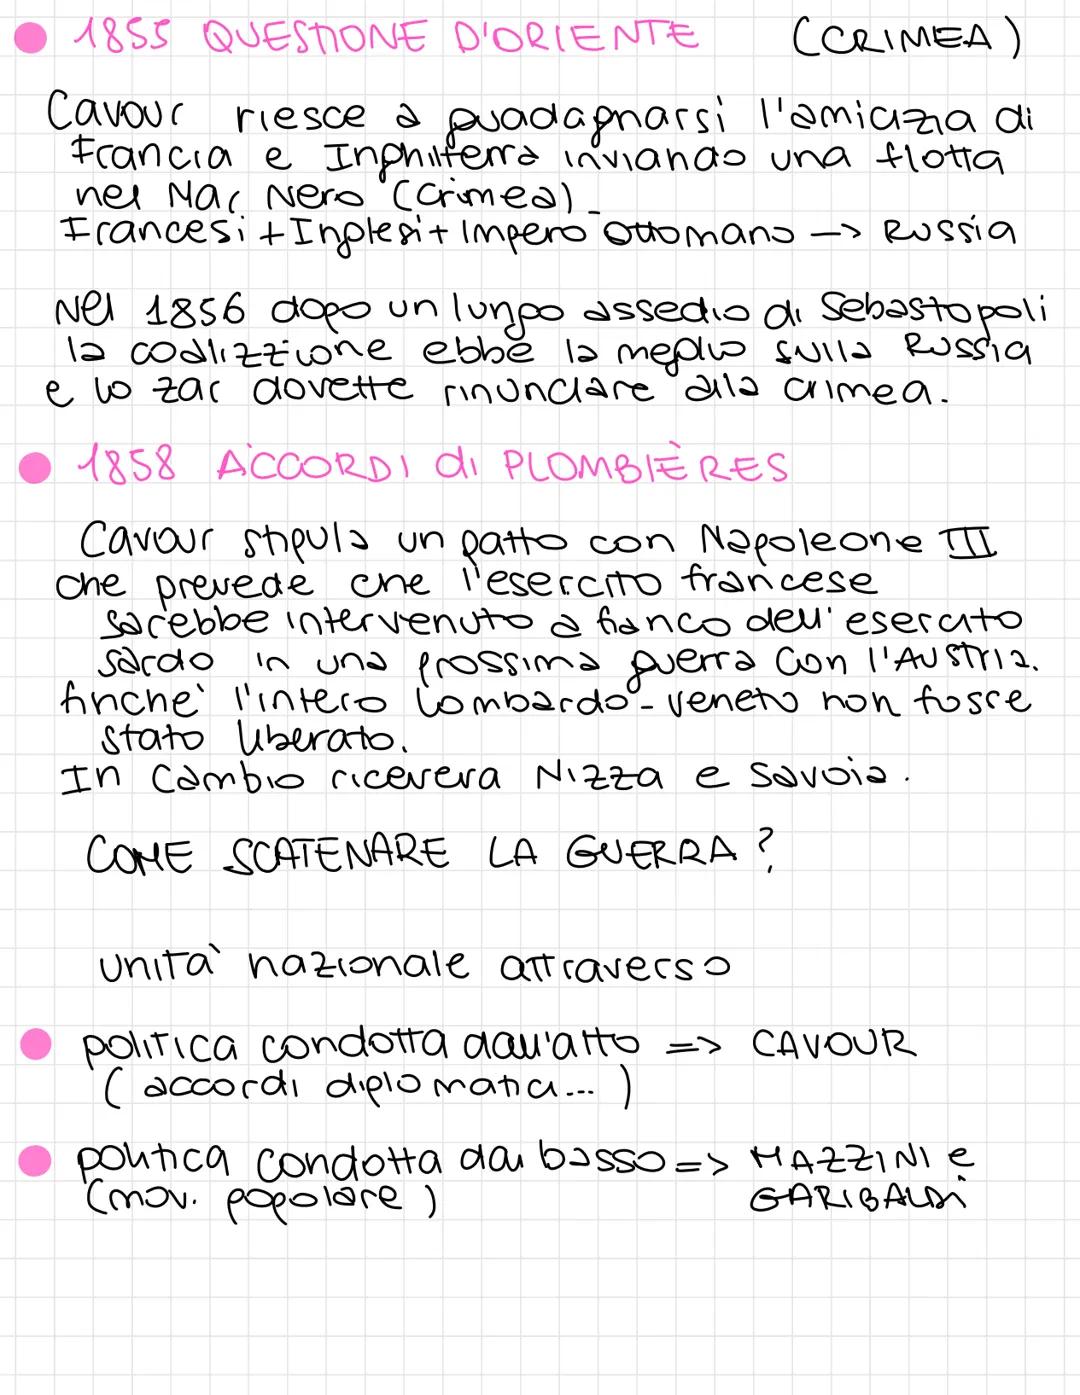 1855 QUESTIONE D'ORIENTE (CRIMEA)
Cavour riesce a guadagnarsi l'amicizia di
Francia e Inghilterra inviando una flotta
nel Mar Nero (Crimea)
Francesi + Inglesi + Impero Ottomano -> Russia
Nel 1856 dopo un lungo assedio di Sebastopoli
la coalizzione ebbe la meglio sulla Russia
e lo zar dovette rinunciare alla crimea.
1858 ACCORDI di PLOMBIÈRES
Cavour stipula un patto con Napoleone III
che prevede che l'esercito francese
sarebbe intervenuto a fianco dell'esercito
sardo in una prossima guerra con l'AUSTRIA.
finche' l'intero Lombardo-veneto non fosse
stato liberato.
In cambio riceverà Nizza e Savoia.
COME SCATENARE LA GUERRA?
unità nazionale attraverso
politica condotta dall'alto => CAVOUR
(accordi diplomatici...)
politica condotta dal basso => MAZZINI e
(mov. popolare) GARIBALDI